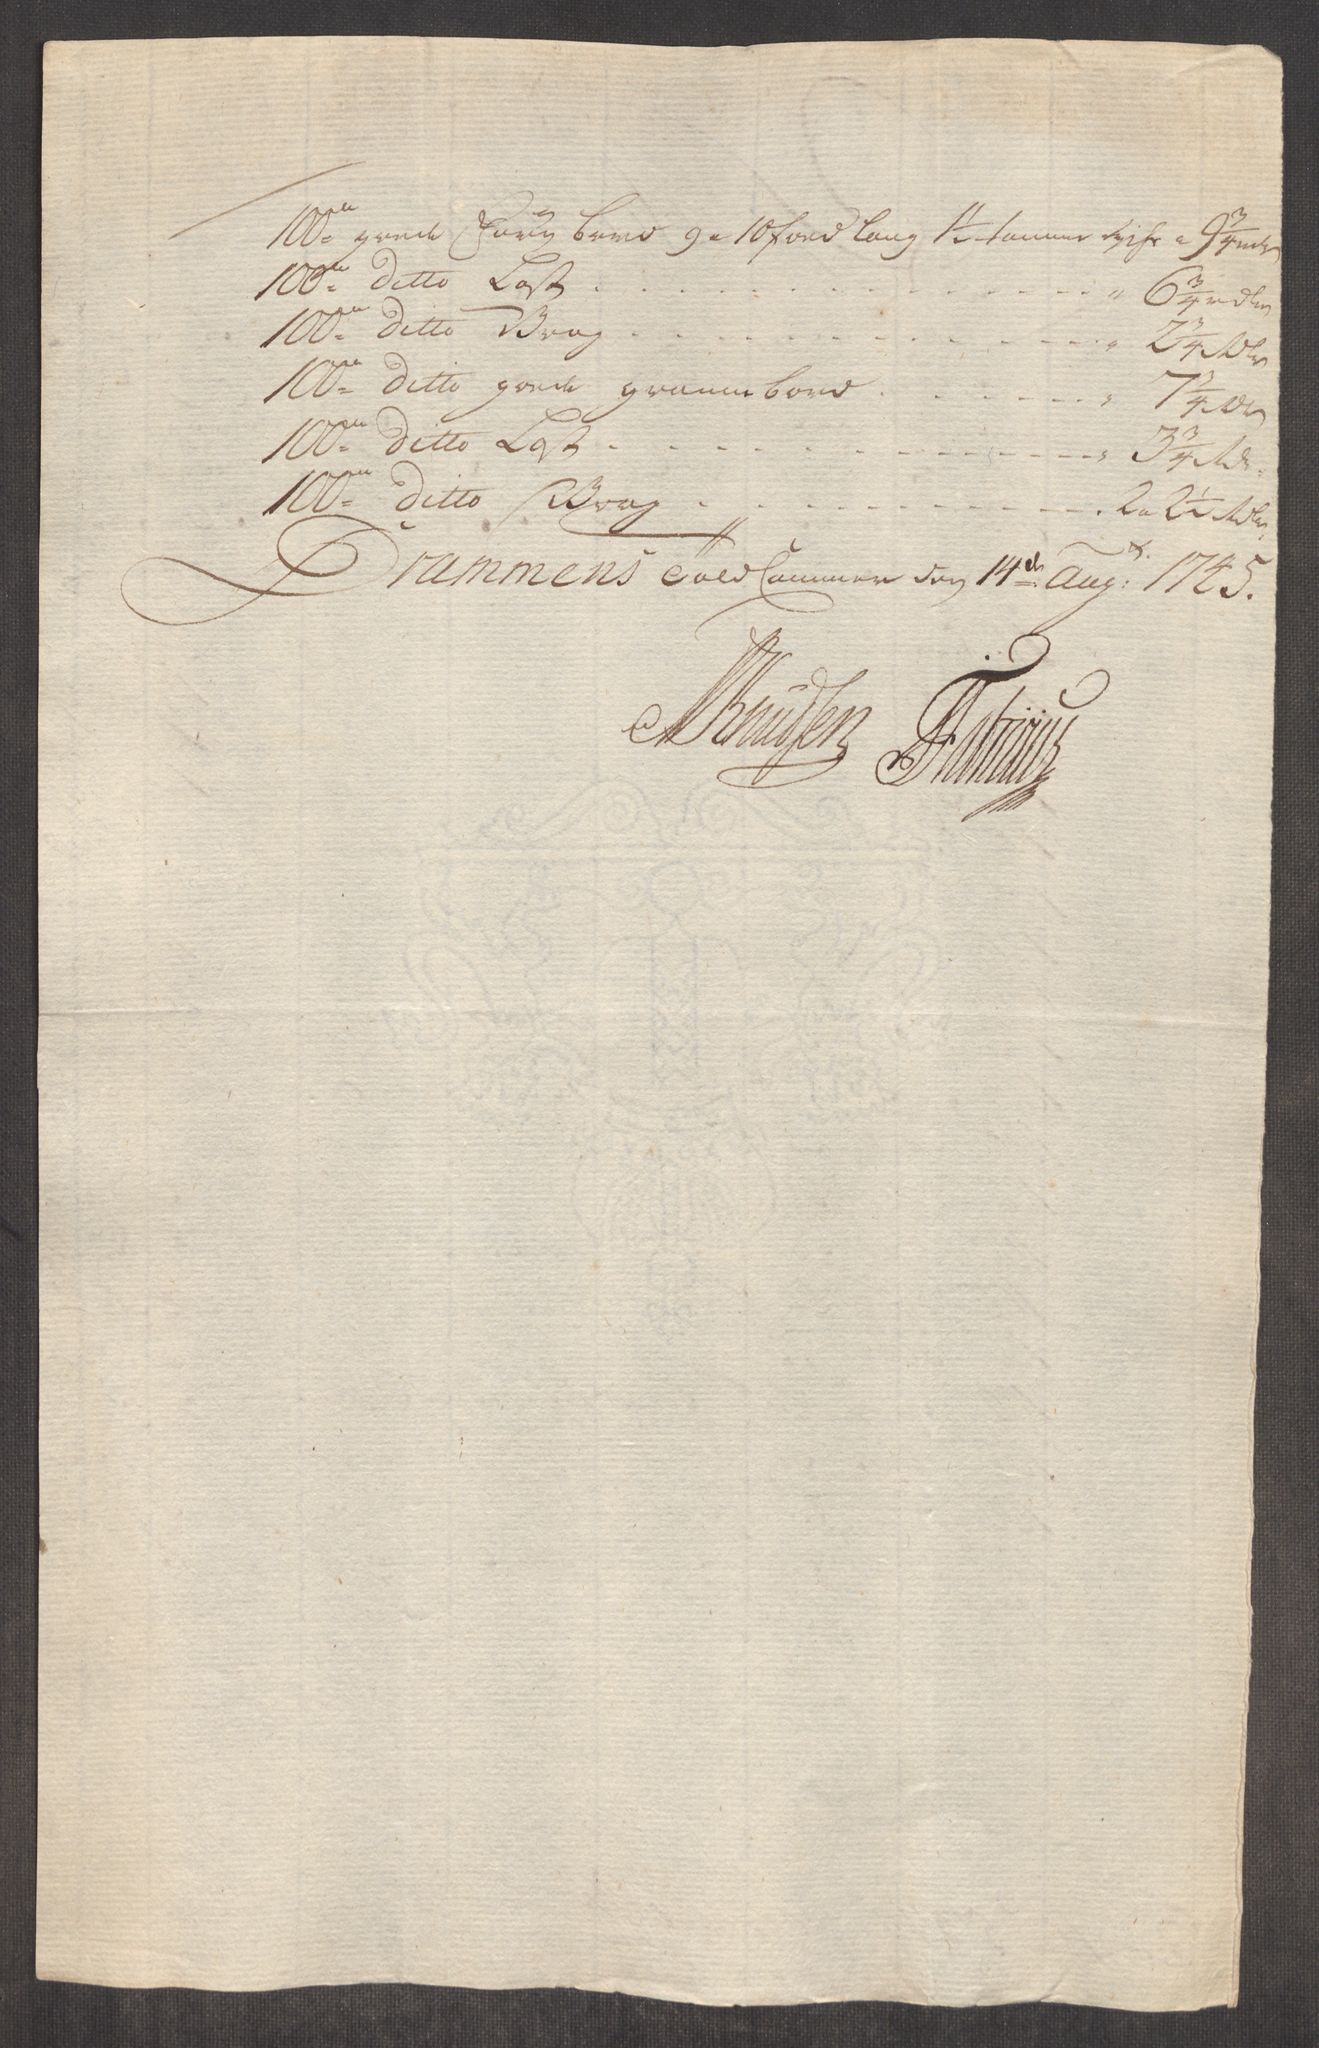 100de goede Furu bord 9 a 10 foed lang 1½ tommer tyk a 9¾ rdr
100de ditto Last . . . . . . . . . . . . . " 6¾ rdlr
100de ditto Vrag . . . . . . . . . . . . . " 2¾ Rdlr
100de ditto goede graanne bord . . . . . . . " 7¾ Rdr
100de ditto Last . . . . . . . . . . . . . " 3¾ Rdr
100de ditto Vrag . . . . . . . . . . . . . 2 a 2½ Rdlr
Drammens Told Cammer den 14de Aug: 1745.
Knudsen Fabricius